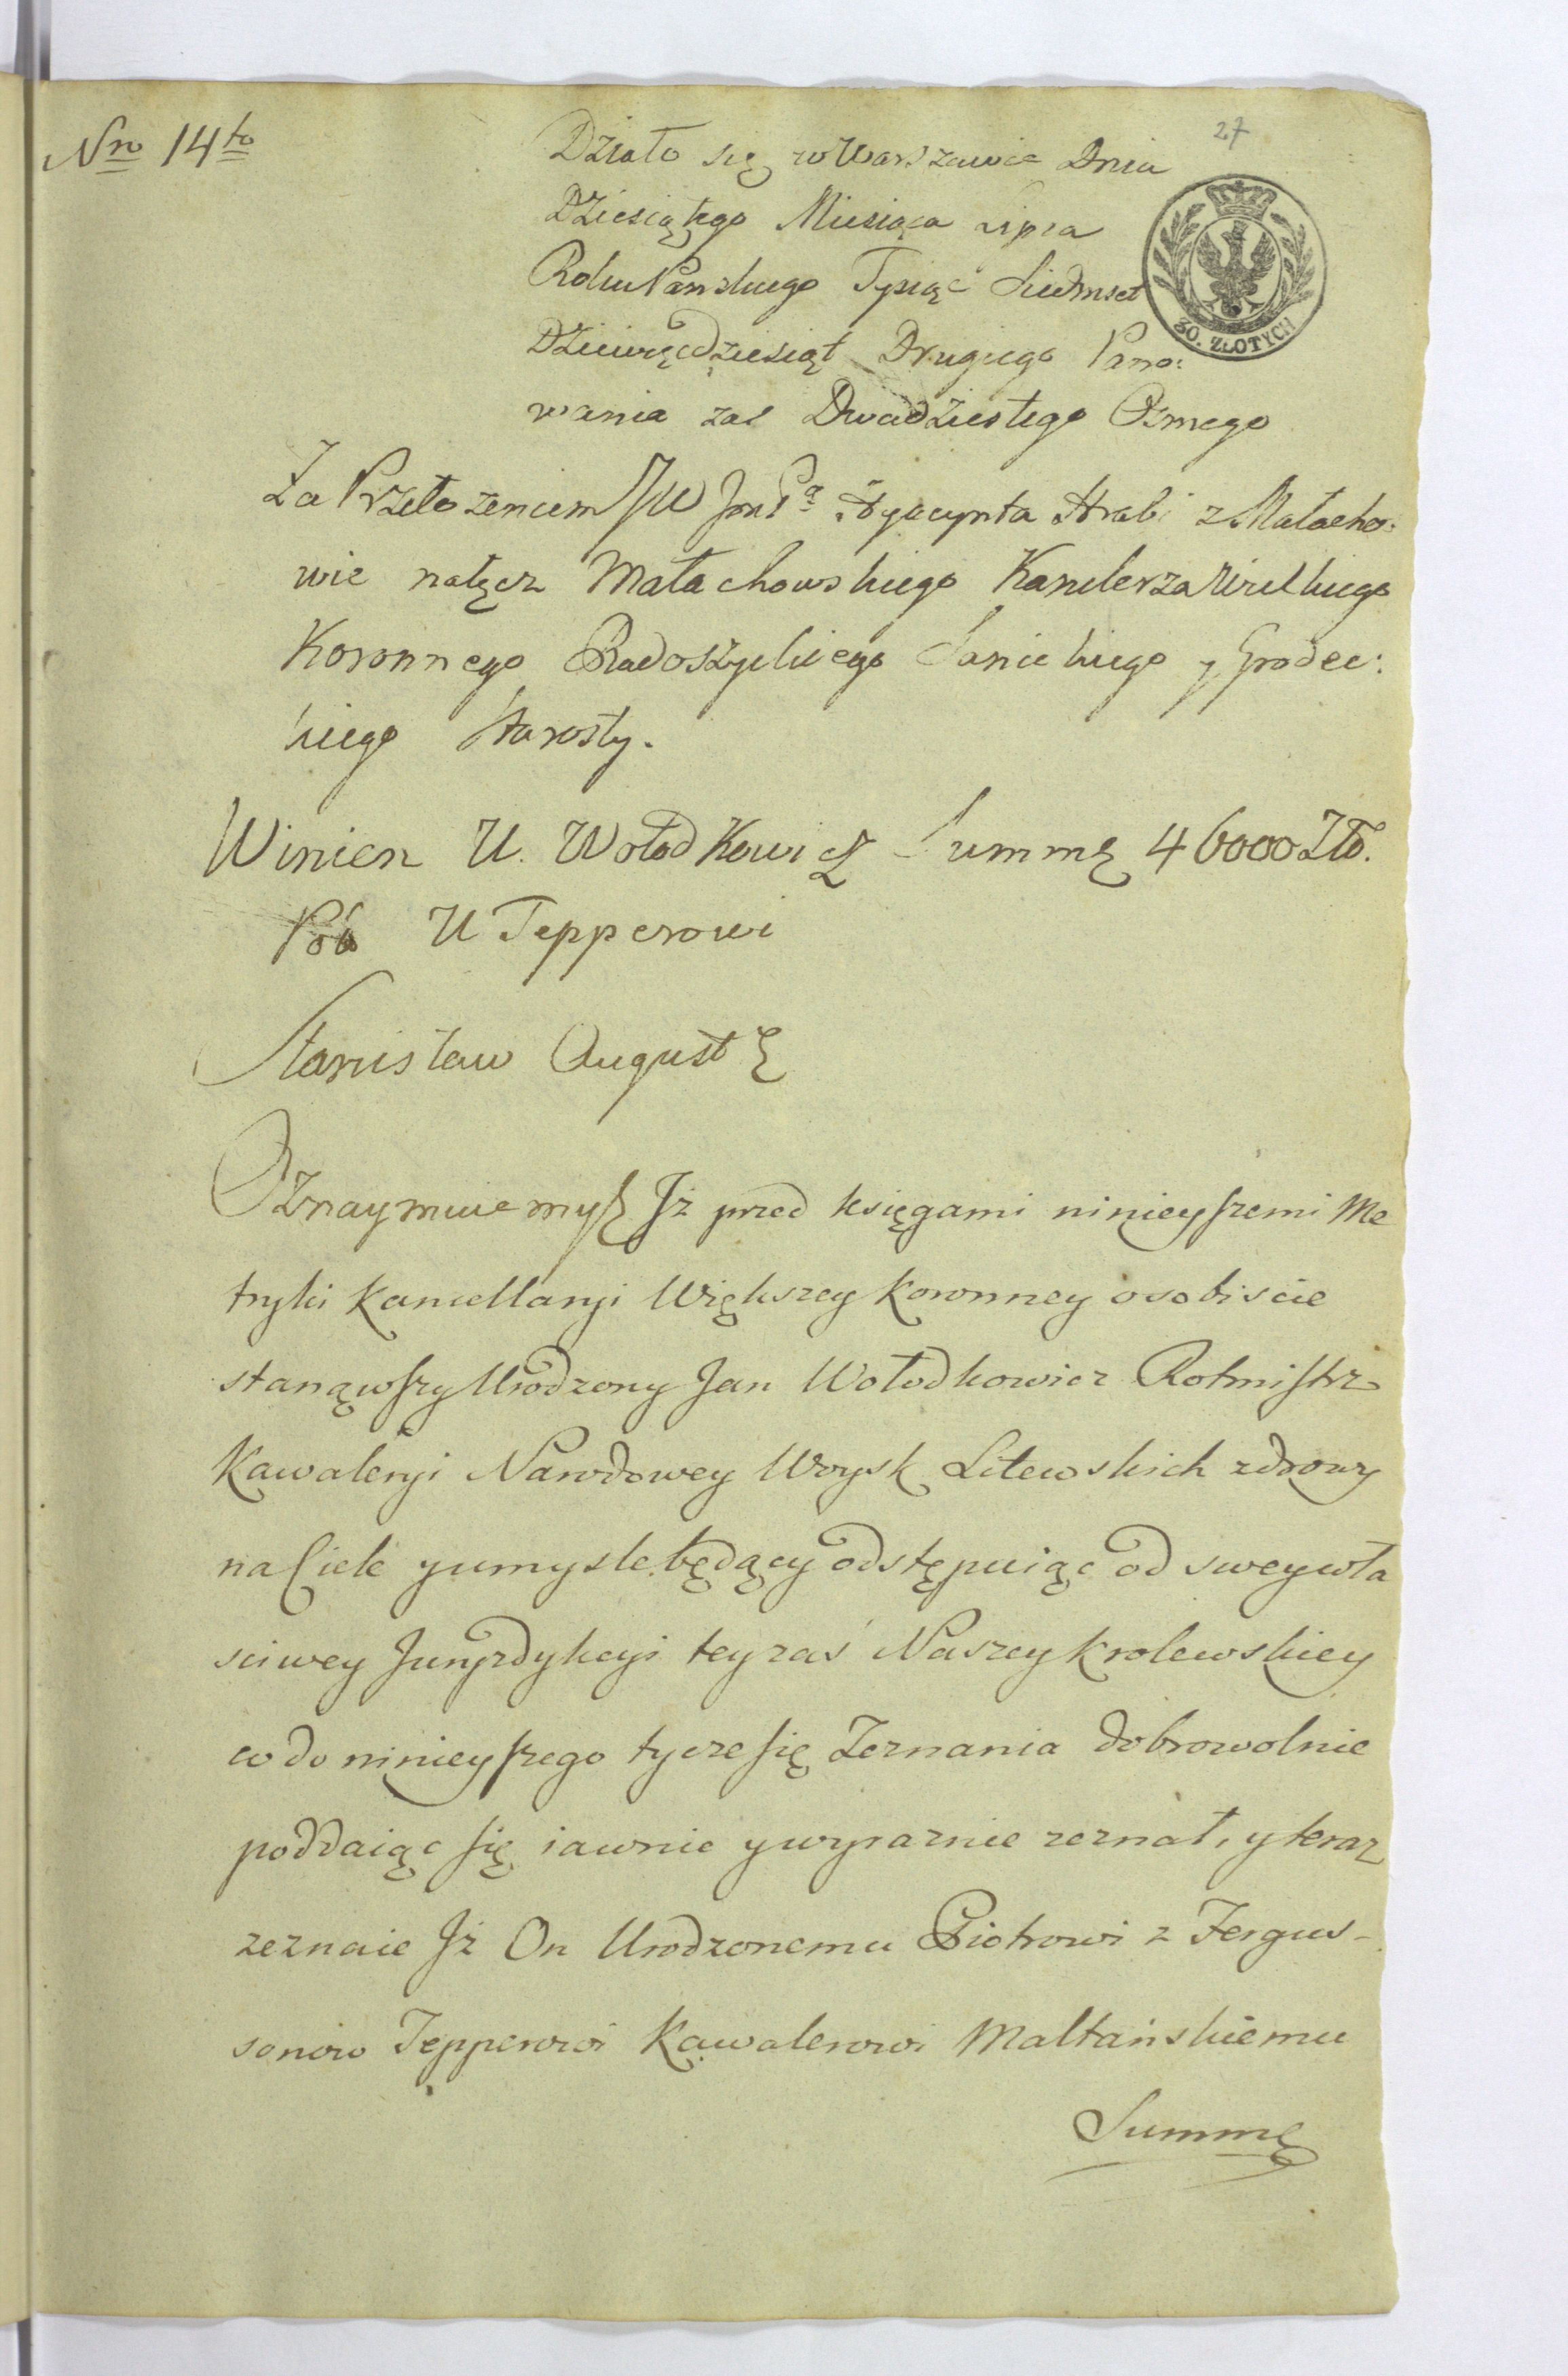 Nro 14to
27
Działo się w Warszawie Dnia
Dziesiątego Miesiąca Lipca
Roku Panskiego Tysiąc Siedmset
Dziewięćdziesiąt Drugiego Pano:
wania zaś Dwadziestego Osmego
30. ZŁOTYCH
Za Przełożeniem JW JmPa Hyacynta Hrabi z Małacho:
wic nałęcz Małachowskiego Kanclerza Wielkiego
Koronnego Radoszyckiego Sanickiego y Grodec:
kiego Starosty.
Winien U. Wołodkowicz Summę 46000 Zło.
Pol U Tepperowi
Stanisław August
Oznaymuiemy Jż przed księgami ninieyszemi Me
tryki Kancellaryi Większey Koronney osobiscie
stanąwszy Urodzony Jan Wołodkowicz Rotmistrz
Kawaleryi Narodowey Woysk Litewskich zdrowy
na Ciele y umysle będący odstępuiąc od swey wła
sciwey Juryzdykcyi tey zaś Naszey Krolewskiey
co do ninieyszego tycze się Zeznania dobrowolnie
poddaiąc się iawnie y wyraznie zeznał, y teraz
zeznaie Jż On Urodzonemu Piotrowi z Fergus-
sonow Tepperowi Kawalerowi Maltańskiemu
Summę